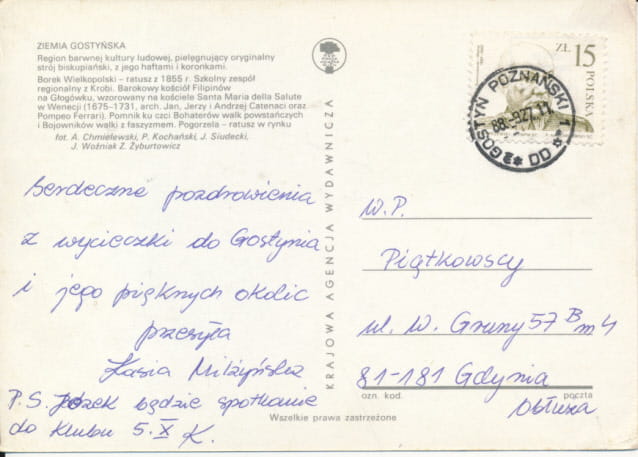 ZIEMIA GOSTYŃSKA
Region barwnej kultury ludowej, pielęgnujący oryginalny
strój biskupiański, z jego haftami i koronkami.
Borek Wielkopolski – ratusz z 1855 r. Szkolny zespół
regionalny z Krobi. Barokowy kościół Filipinów
na Głogówku, wzorowany na kościele Santa Maria della Salute
w Wenecji (1675–1731, arch. Jan, Jerzy i Andrzej Catenaci oraz
Pompeo Ferrari). Pomnik ku czci Bohaterów walk powstańczych
i Bojowników walki z faszyzmem. Pogorzela – ratusz w rynku
fot. A. Chmielewski, P. Kochański, J. Siudecki,
J. Woźniak Z. Żyburtowicz
Serdeczne pozdrowienia
z wycieczki do Gostynia
i jego pięknych okolic
przesyła
Kasia
P.S. będzie spotkanie
do Klubu 5.X K.
KRAJOWA AGENCJA WYDAWNICZA
ZŁ 15
POLSKA
GOSTYŃ POZNAŃSKI 1
W.P.
Piątkowscy
ul. W. Gruny 57 B m 4
81-181 Gdynia
ozn. kod. poczta
Obłuże
Wszelkie prawa zastrzeżone